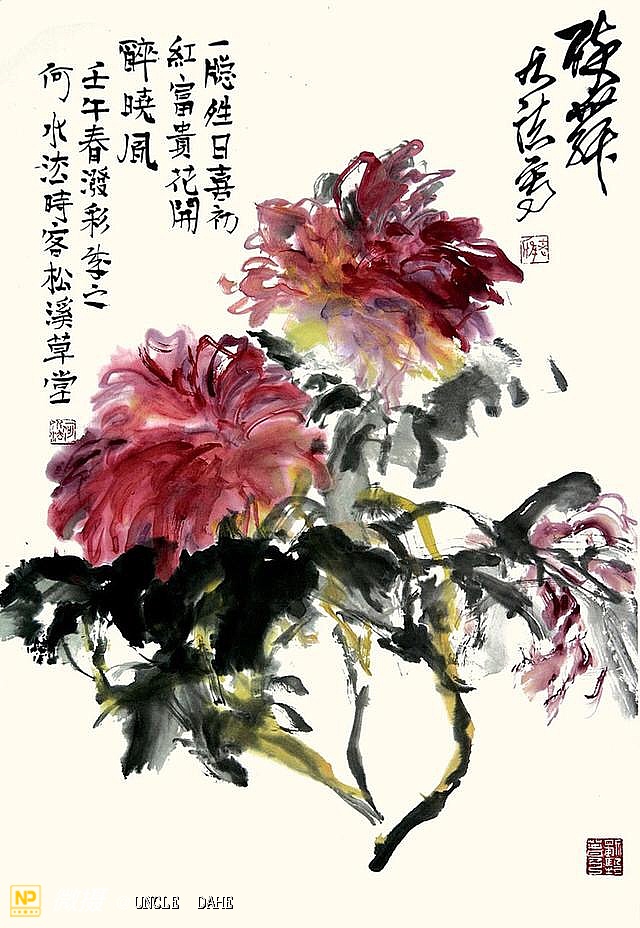 醉舞
水法画
一聪姓日喜初
紅富貴花開
醉曉風
壬午春潑彩季之
何水法時客松溪草堂
NP
UNCLE DAHE